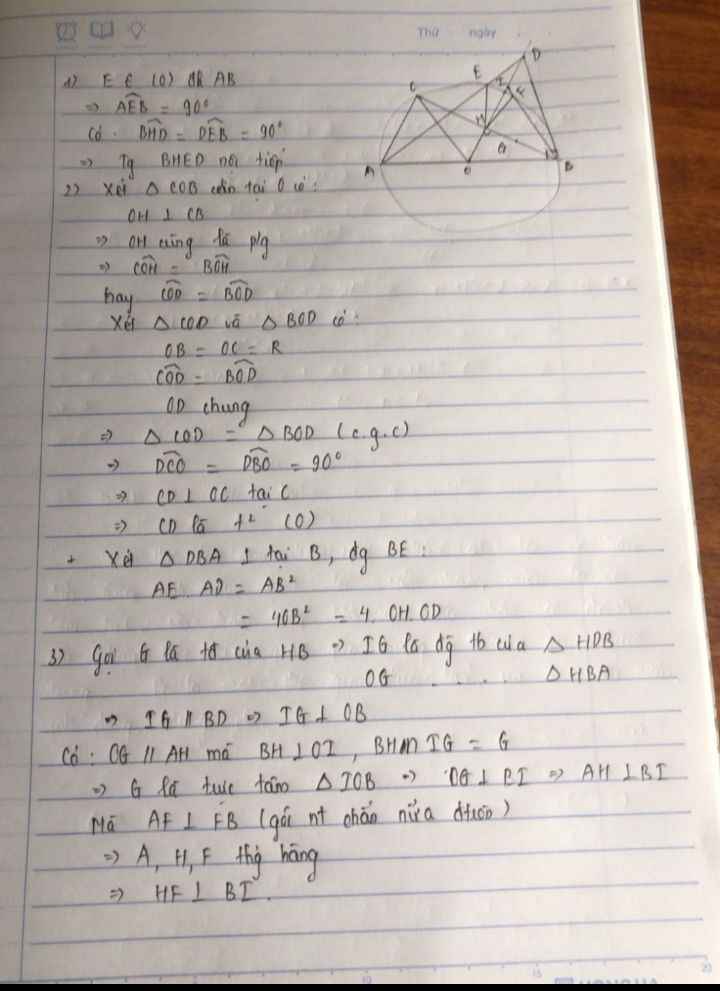 Thứ ngày
1) E ∈ (O) đk AB
=> AÊB = 90°
Có : BĤD = DÊB = 90°
=> Tg BHED nội tiếp
2) Xét Δ COB cân tại O có :
OH ⊥ CB
=> OH cũng là p/g
=> CÔH = BÔH
hay CÔD = BÔD
Xét Δ COD và Δ BOD có :
OB = OC = R
CÔD = BÔD
OD chung
=> Δ COD = Δ BOD (c.g.c)
=> DĈO = DB̂O = 90°
=> CD ⊥ OC tại C
=> CD là t² (O)
+ Xét Δ DBA ⊥ tại B, đg BE :
AE. AD = AB²
= 4OB² = 4. OH. OD
3) Gọi G là tđ của HB => IG là đg tb của Δ HDB
OG . . . . Δ HBA
=> IG // BD => IG ⊥ OB
Có : OG // AH mà BH ⊥ OI , BH ∩ IG = G
=> G là trực tâm Δ IOB => OG ⊥ BI => AH ⊥ BI
Mà AF ⊥ FB (góc nt chắn nửa đtròn)
=> A, H, F thg hàng
=> HF ⊥ BI.
C
E
D
I
F
H
G
A
O
B
10
15
20